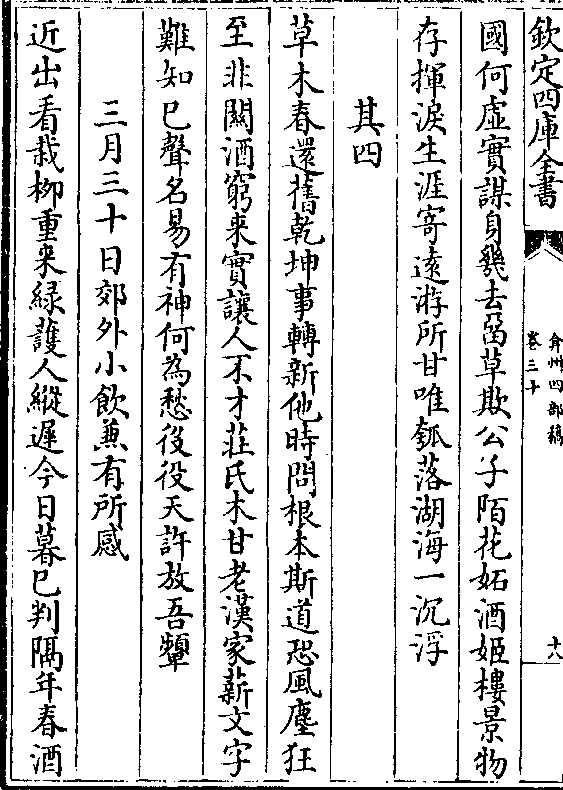 欽定四庫全書
弇州四部稿
卷三十
十八
國何虛實謀身幾去留草欺公子陌花妬酒姬樓景物
存揮淚生涯寄遠游所甘唯瓠落湖海一沉浮
其四
草木春還舊乾坤事轉新他時問根本斯道恐風塵狂
至非關酒窮来實讓人不才莊氏木甘老漢家薪文字
難知巳聲名易有神何為愁役役天許放吾顰
三月三十日郊外小飲兼有所感
近出看栽柳重来緑護人縱遲今日暮巳判隔年春酒